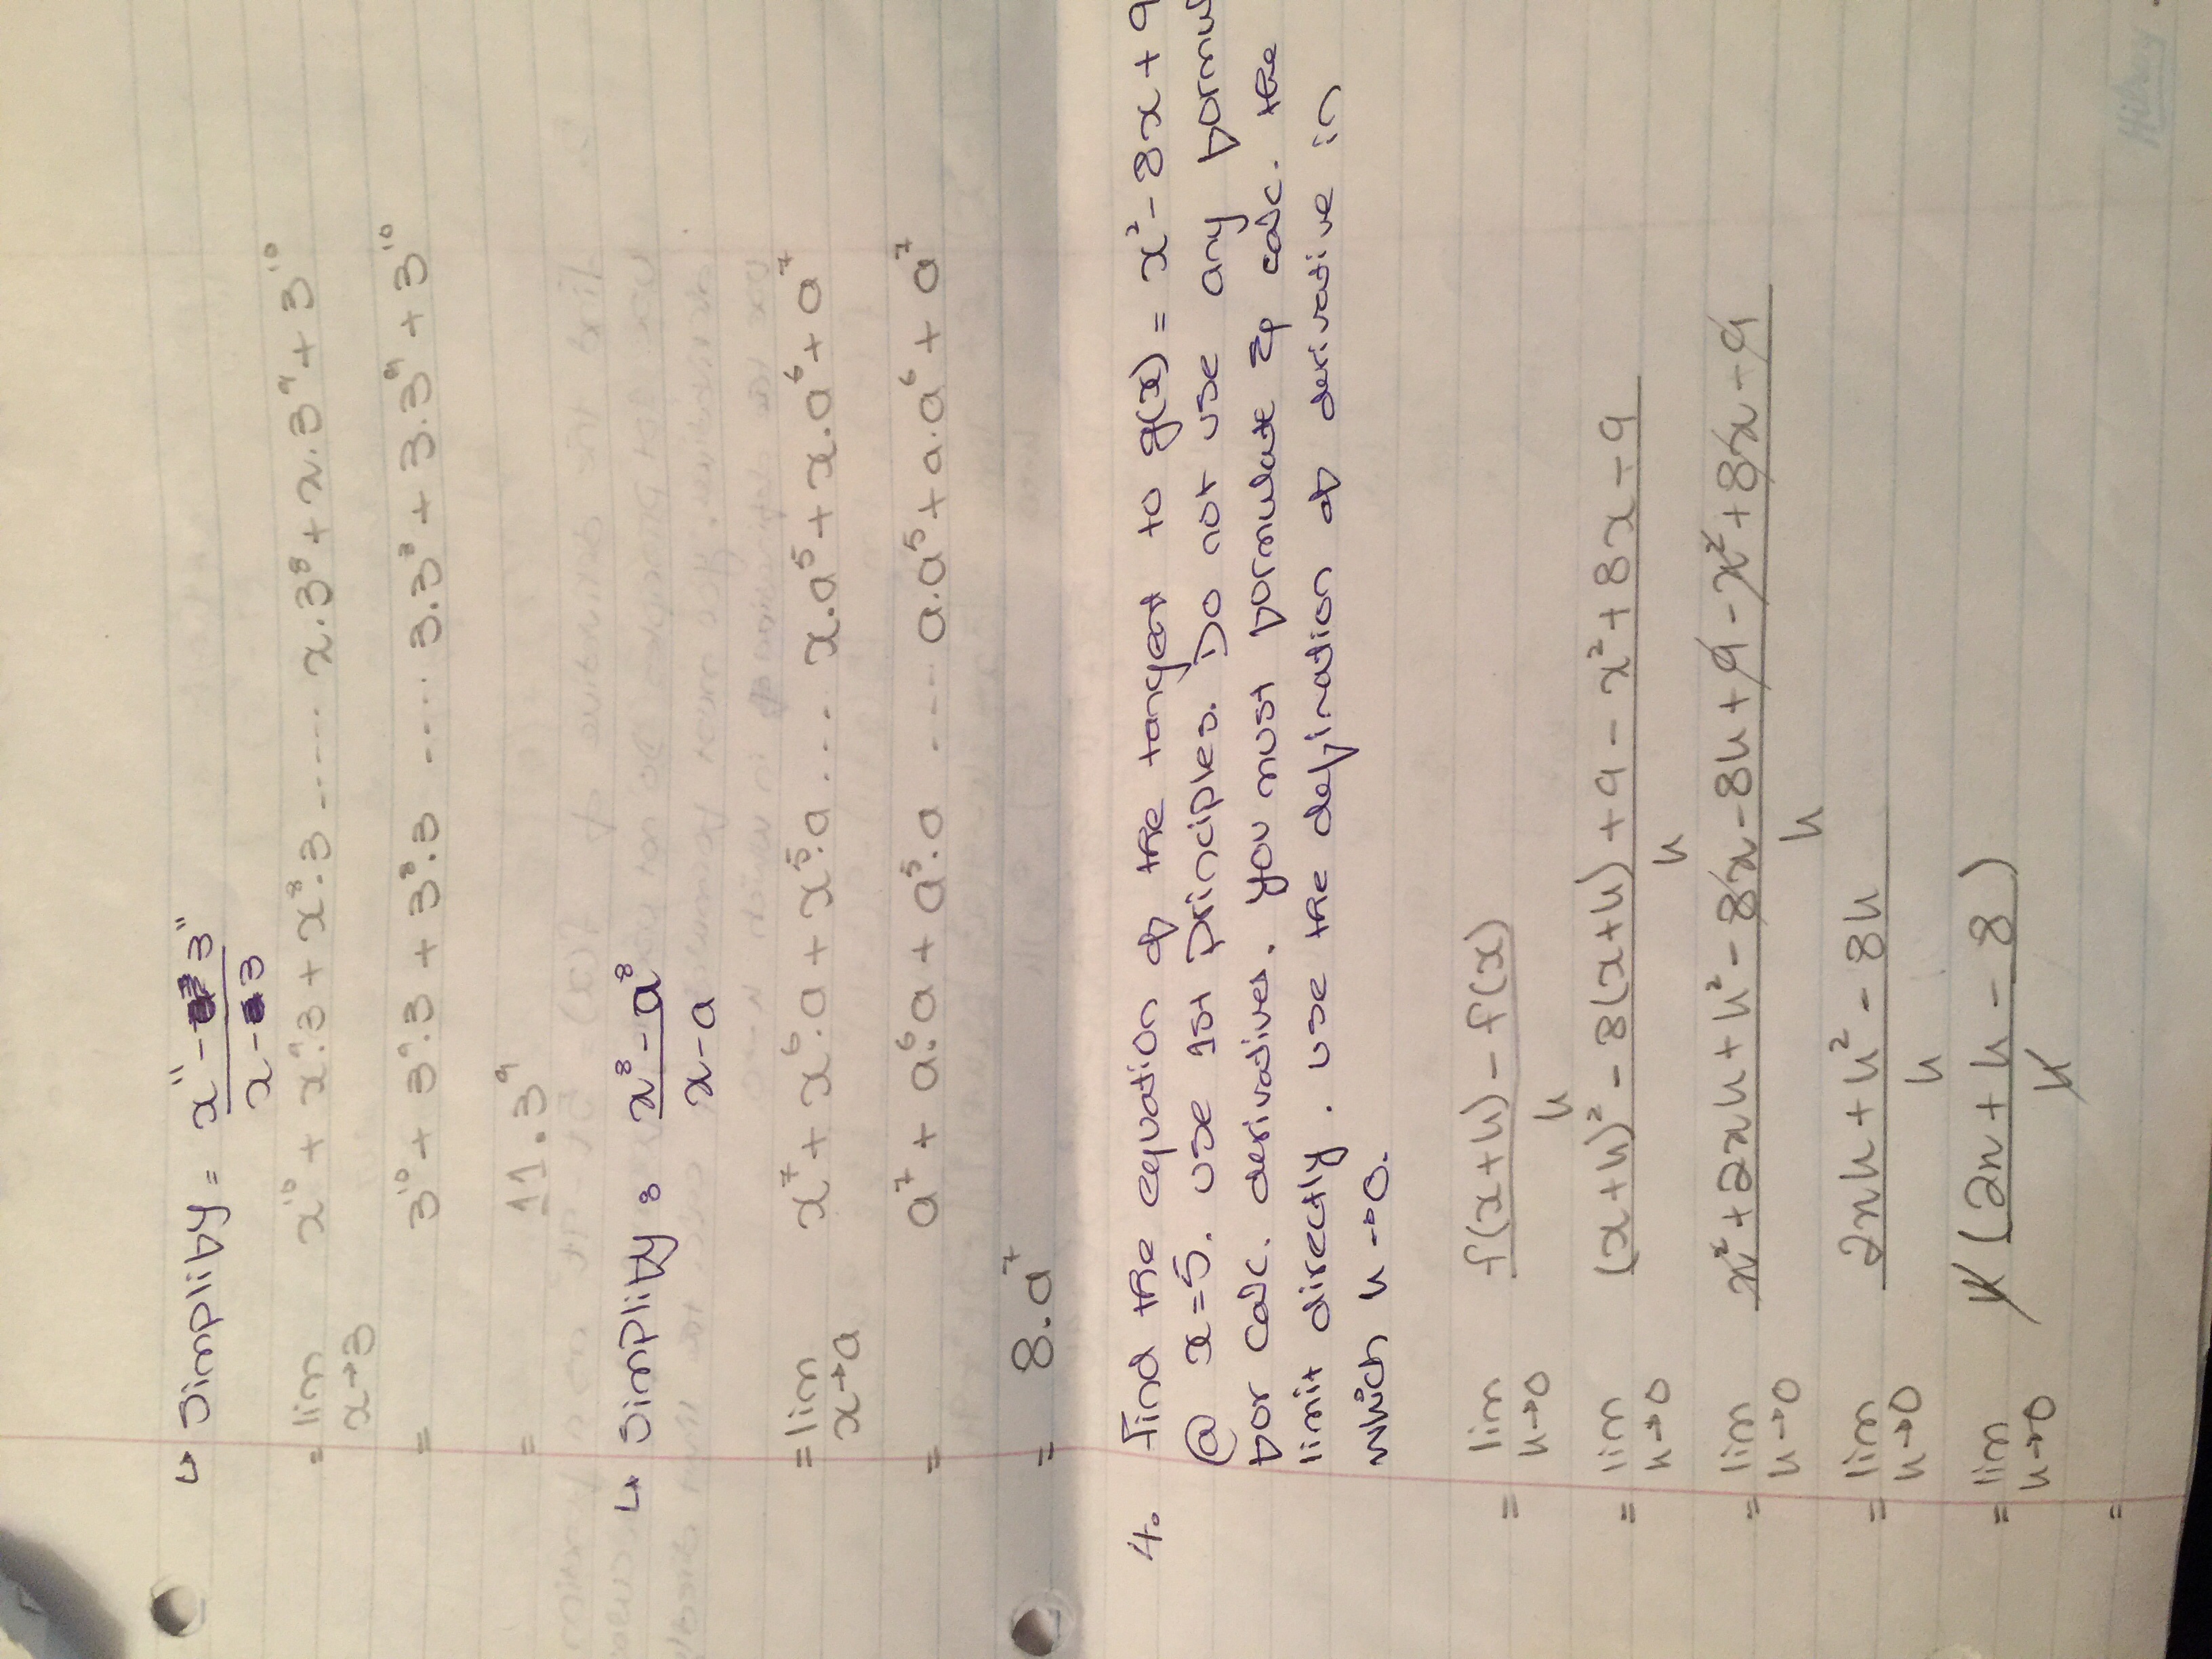 ↳ Simplify = x¹¹ - 3¹¹ / x - 3
= lim x→3 x¹⁰ + x⁹.3 + x⁸.3 ..... x.3⁸ + x.3⁹ + 3¹⁰
= 3¹⁰ + 3⁹.3 + 3⁸.3 .... 3.3⁸ + 3.3⁹ + 3¹⁰
= 11.3⁹
↳ Simplify: x⁸ - a⁸ / x - a
= lim x→a x⁷ + x⁶.a + x⁵.a .... x.a⁵ + x.a⁶ + a⁷
= a⁷ + a⁶.a + a⁵.a .... a.a⁵ + a.a⁶ + a⁷
= 8.a⁷
4. Find the equation of the tangent to g(x) = x² - 8x + 9
@ x=5. use 1st principles. Do not use any
for calc. derivatives. you must formulate & calc. the
limit directly. use the defination of derivative in
which h→0.
= lim h→0 f(x+h) - f(x) / h
= lim h→0 (x+h)² - 8(x+h) + 9 - x² + 8x - 9 / h
= lim h→0 x² + 2xh + h² - 8x - 8h + 9 - x² + 8x - 9 / h
= lim h→0 2xh + h² - 8h / h
= lim h→0 h(2x + h - 8) / h
=
Hilroy